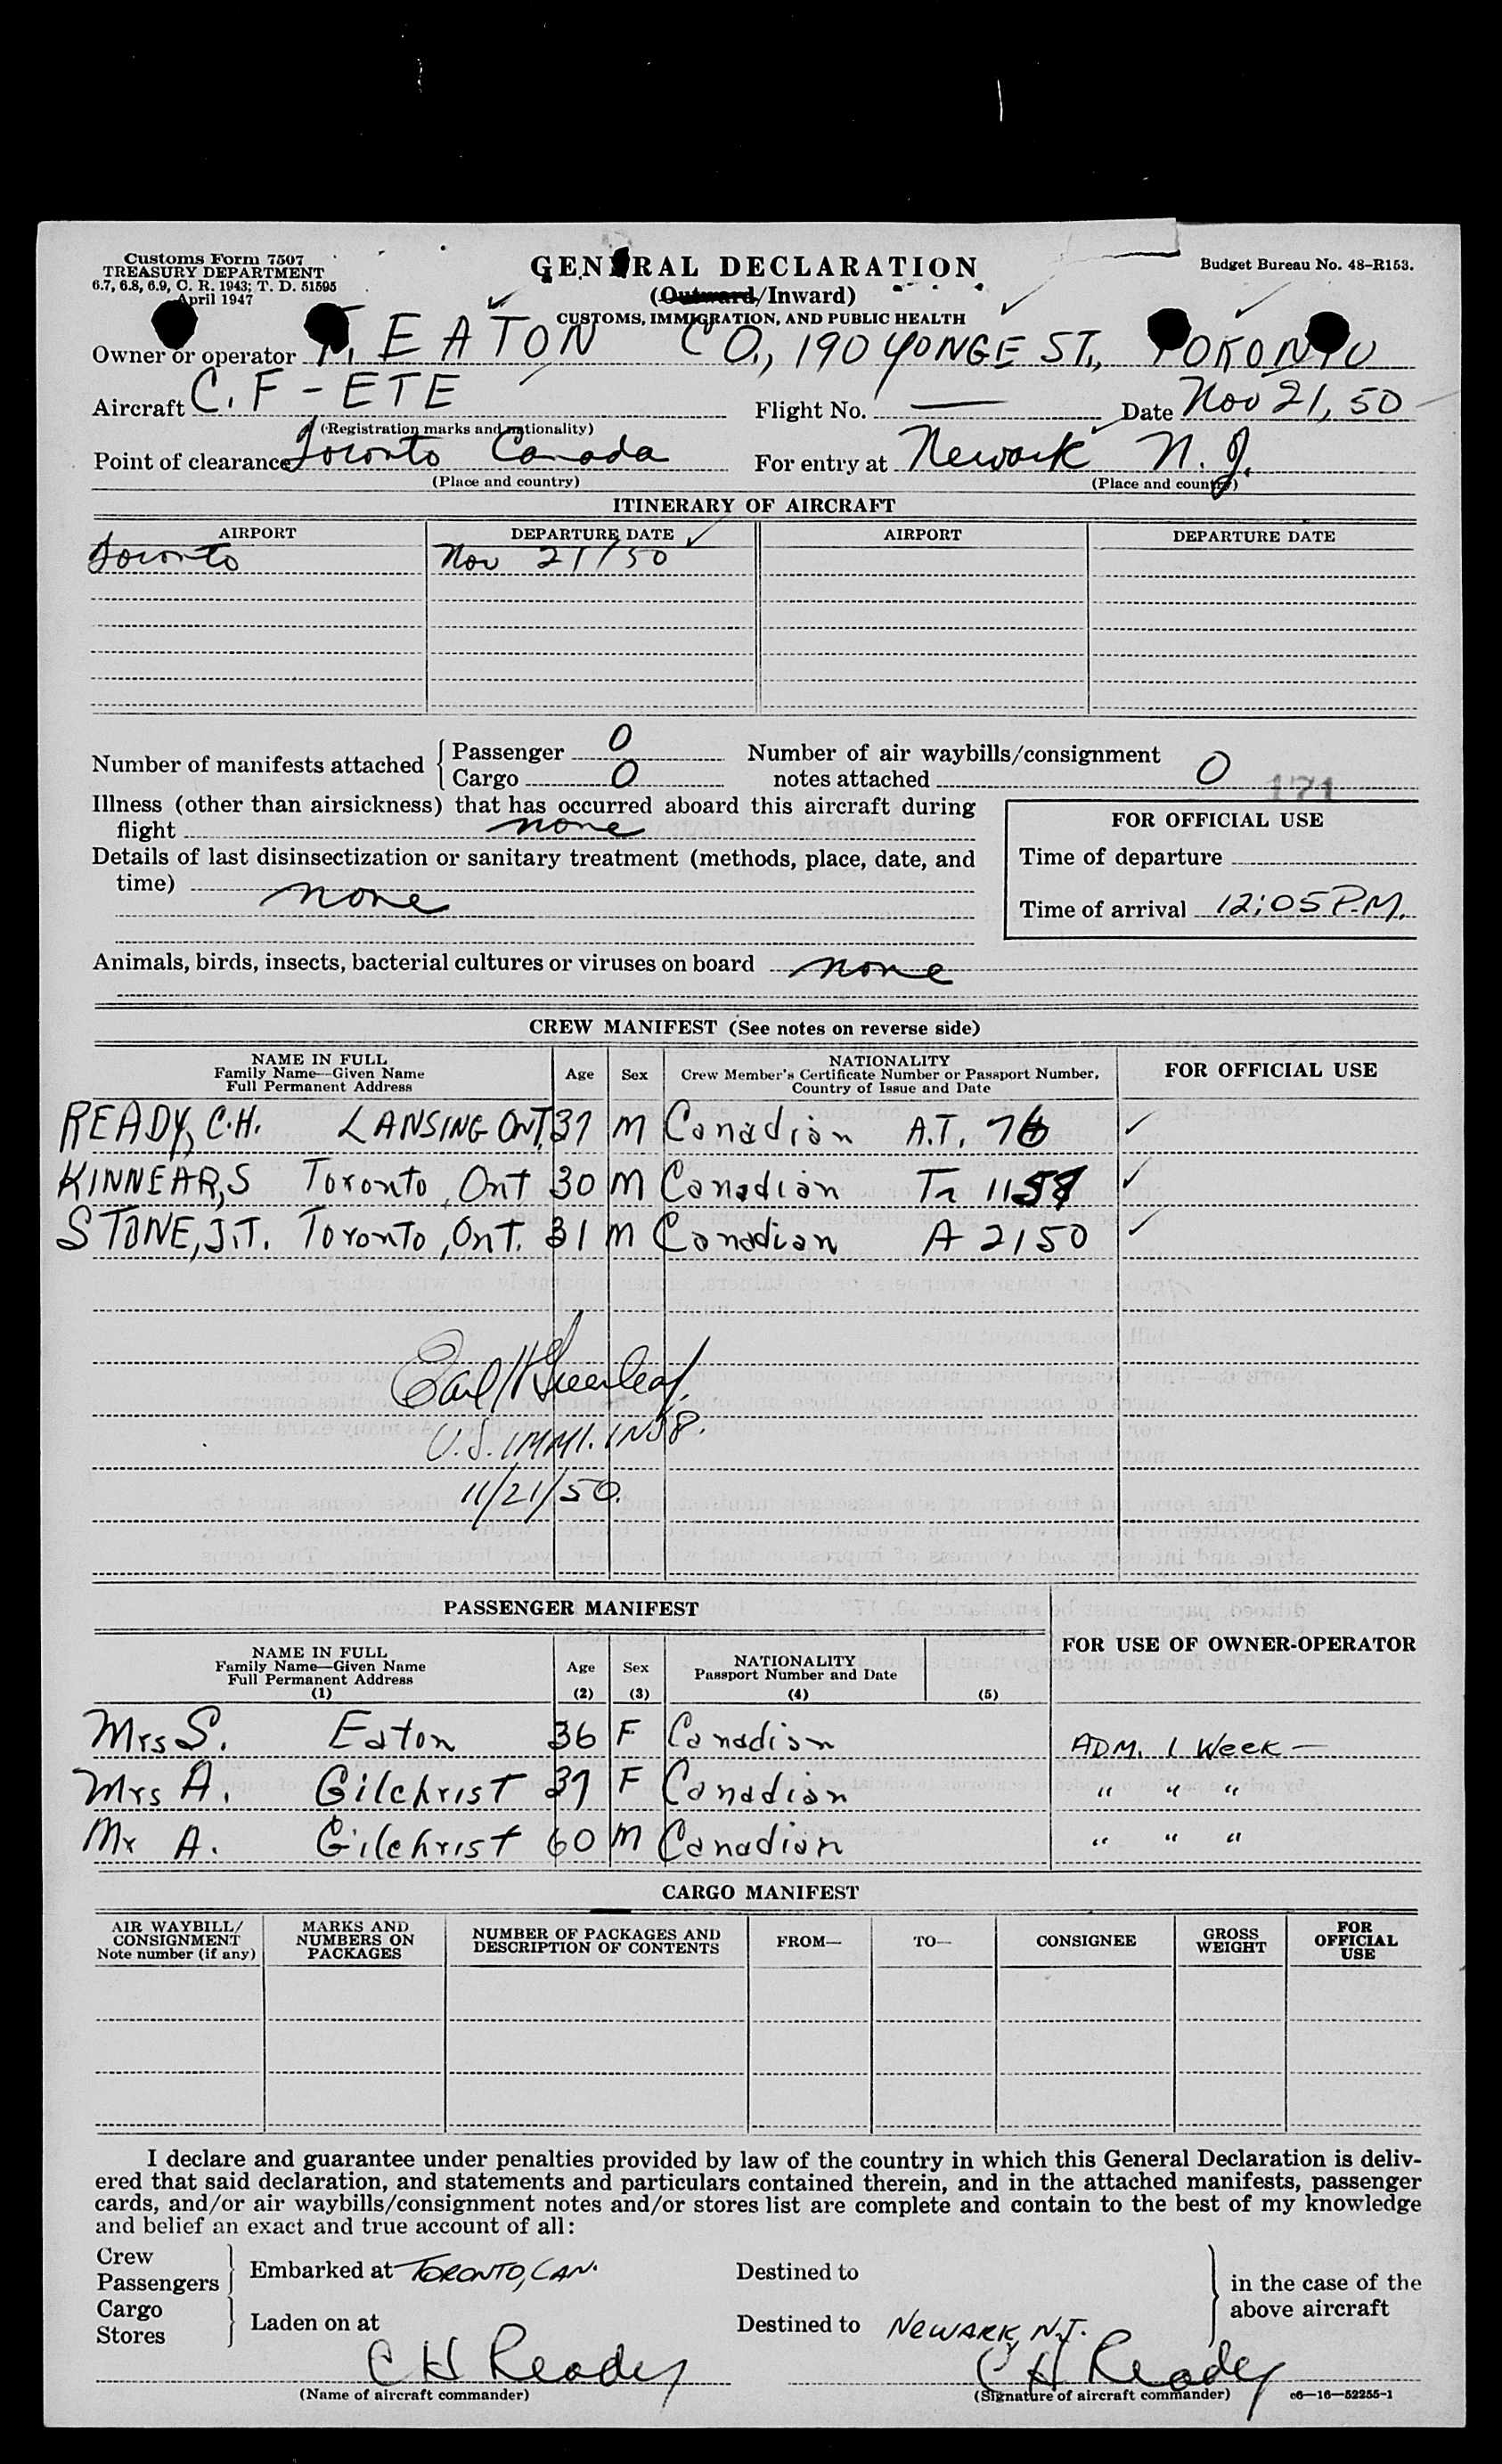 Customs Form 7507
TREASURY DEPARTMENT
6.7, 6.8, 6.9, C. R. 1943; T. D. 51595
April 1947
GENERAL DECLARATION
(Outward/Inward)
CUSTOMS, IMMIGRATION, AND PUBLIC HEALTH
Budget Bureau No. 48-R153.
Owner or operator T. EATON CO., 190 YONGE ST., TORONTO
Aircraft C.F-ETE Flight No. — Date Nov 21, 50
(Registration marks and nationality)
Point of clearance Toronto Canada For entry at Newark N.J.
(Place and country) (Place and country)
ITINERARY OF AIRCRAFT
AIRPORT DEPARTURE DATE AIRPORT DEPARTURE DATE
Toronto Nov 21/50
Number of manifests attached { Passenger 0
Cargo 0
Number of air waybills/consignment
notes attached 0
171
Illness (other than airsickness) that has occurred aboard this aircraft during
flight none
Details of last disinsectization or sanitary treatment (methods, place, date, and
time) none
FOR OFFICIAL USE
Time of departure
Time of arrival 12:05 P.M.
Animals, birds, insects, bacterial cultures or viruses on board none
CREW MANIFEST (See notes on reverse side)
NAME IN FULL
Family Name—Given Name
Full Permanent Address
Age Sex
NATIONALITY
Crew Member's Certificate Number or Passport Number,
Country of Issue and Date
FOR OFFICIAL USE
READY, C.H. LANSING ONT. 37 M Canadian A.T. 76 ✓
KINNEAR, S Toronto, Ont 30 M Canadian Tr ✓
STONE, J.T. Toronto, Ont. 31 M Canadian A 2150 ✓
Earl H Greenleaf
U.S. IMMI. INSP.
11/21/50.
PASSENGER MANIFEST
NAME IN FULL
Family Name—Given Name
Full Permanent Address
(1)
Age
(2)
Sex
(3)
NATIONALITY
Passport Number and Date
(4) (5)
FOR USE OF OWNER-OPERATOR
Mrs S. Eaton 36 F Canadian ADM. 1 Week —
Mrs A. Gilchrist 37 F Canadian " " "
Mr A. Gilchrist 60 M Canadian " " "
CARGO MANIFEST
AIR WAYBILL/
CONSIGNMENT
Note number (if any)
MARKS AND
NUMBERS ON
PACKAGES
NUMBER OF PACKAGES AND
DESCRIPTION OF CONTENTS
FROM—
TO—
CONSIGNEE
GROSS
WEIGHT
FOR
OFFICIAL
USE
I declare and guarantee under penalties provided by law of the country in which this General Declaration is deliv-
ered that said declaration, and statements and particulars contained therein, and in the attached manifests, passenger
cards, and/or air waybills/consignment notes and/or stores list are complete and contain to the best of my knowledge
and belief an exact and true account of all:
Crew
Passengers } Embarked at TORONTO, CAN. Destined to
Cargo
Stores } Laden on at Destined to NEWARK, N.J.
} in the case of the
above aircraft
C H Ready C H Ready
(Name of aircraft commander) (Signature of aircraft commander) c6—16—52255-1